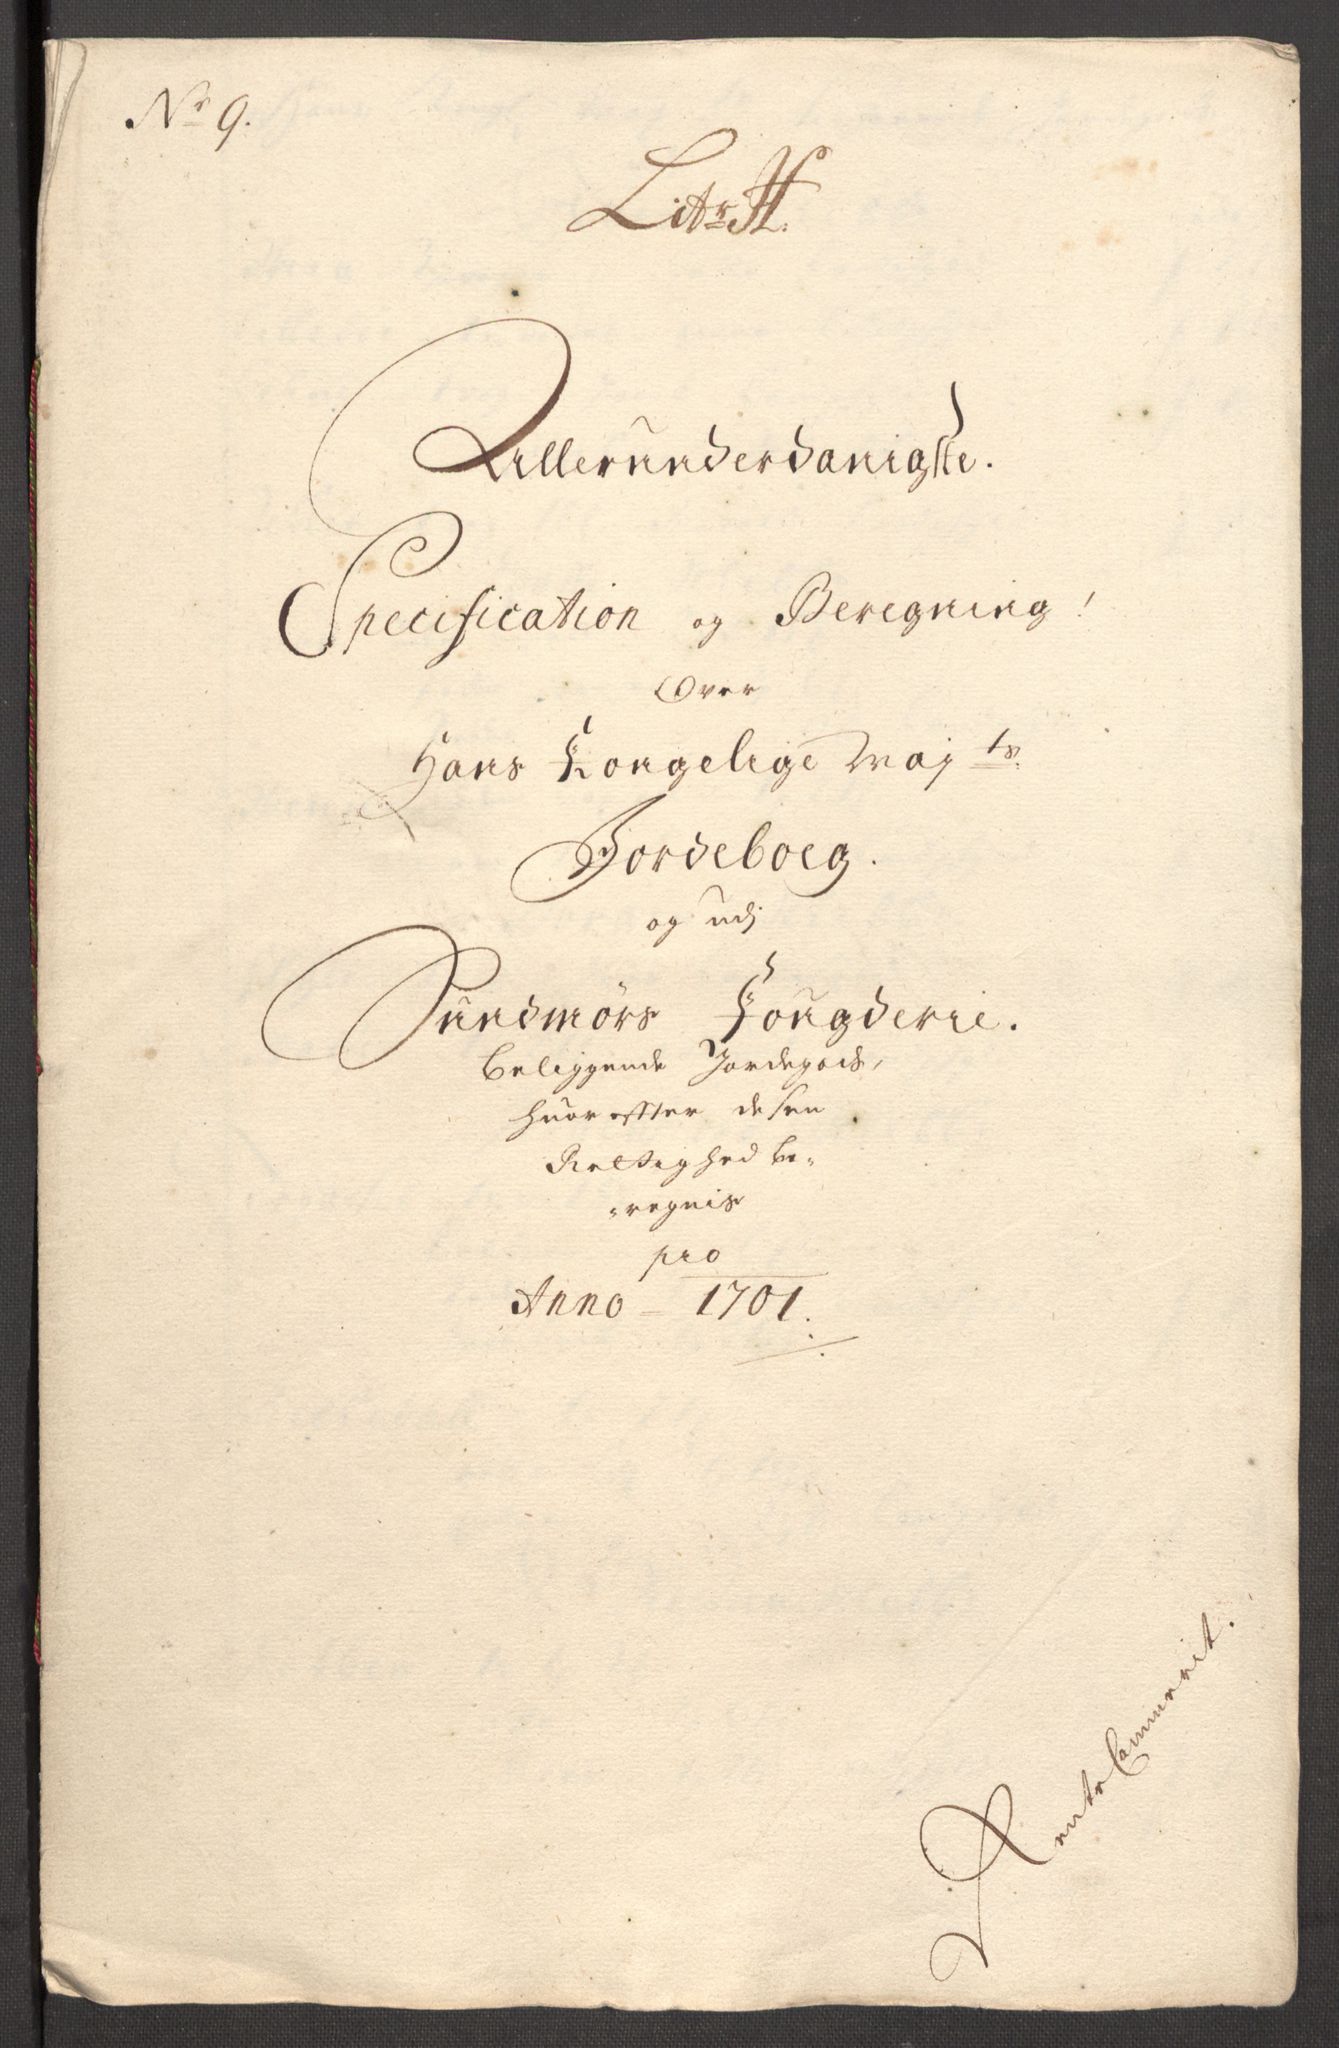 Nr 9.
Litr H.
Allerunderdanigste.
Specification og Beregning!
Over
Hans Kongelige Mayts
Jordeboeg.
og udj
Sundmörs Fougderie.
Beliggende Jordegods,
huor effter desen
Rettighed be-
-regnis
pro
Anno - 1701.
Rente Cammerit.